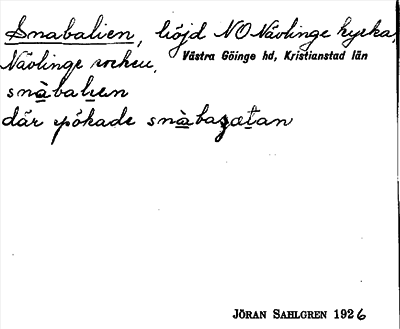 Snabalien, höjd NO Nävlinge kyrka,
Nävlinge socken, Västra Göinge hd, Kristianstad län
snàbalien
där spökade snàbagætan
JÖRAN SAHLGREN 1926